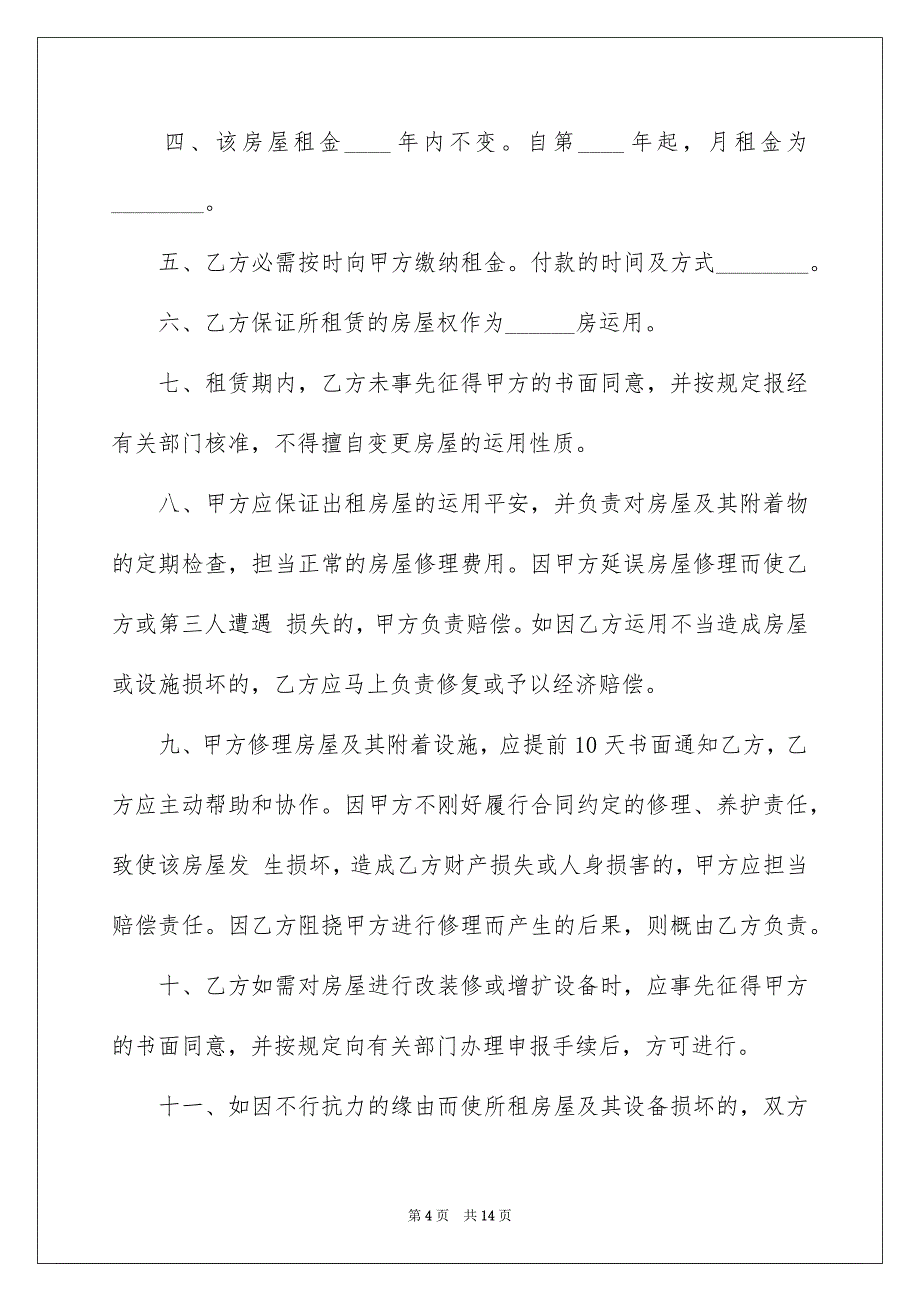 四、该房屋租金____年内不变。自第____年起，月租金为
________。
五、乙方必需按时向甲方缴纳租金。付款的时间及方式________。
六、乙方保证所租赁的房屋权作为______房运用。
七、租赁期内，乙方未事先征得甲方的书面同意，并按规定报经
有关部门核准，不得擅自变更房屋的运用性质。
八、甲方应保证出租房屋的运用平安，并负责对房屋及其附着物
的定期检查，担当正常的房屋修理费用。因甲方延误房屋修理而使乙
方或第三人遭遇 损失的，甲方负责赔偿。如因乙方运用不当造成房屋
或设施损坏的，乙方应马上负责修复或予以经济赔偿。
九、甲方修理房屋及其附着设施，应提前10天书面通知乙方，乙
方应主动帮助和协作。因甲方不刚好履行合同约定的修理、养护责任，
致使该房屋发 生损坏，造成乙方财产损失或人身损害的，甲方应担当
赔偿责任。因乙方阻挠甲方进行修理而产生的后果，则概由乙方负责。
十、乙方如需对房屋进行改装修或增扩设备时，应事先征得甲方
的书面同意，并按规定向有关部门办理申报手续后，方可进行。
十一、如因不行抗力的缘由而使所租房屋及其设备损坏的，双方
第4页 共14页